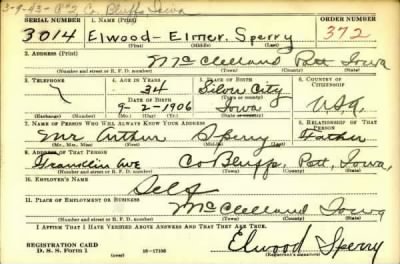 3-9-43- R#2 Co Bluffs Iowa
SERIAL NUMBER 1. NAME (Print) ORDER NUMBER
3014 Elwood - Elmer. Sperry 372
(First) (Middle) (Last)
2. ADDRESS (Print)
McClelland Pott Iowa
(Number and street or R. F. D. number) (Town) (County) (State)
3. TELEPHONE 4. AGE IN YEARS 5. PLACE OF BIRTH 6. COUNTRY OF CITIZENSHIP
34 Silver City
DATE OF BIRTH (Town or county)
9-2-1906 Iowa USA
(Exchange) (Number) (Mo.) (Day) (Yr.) (State or country)
7. NAME OF PERSON WHO WILL ALWAYS KNOW YOUR ADDRESS 8. RELATIONSHIP OF THAT PERSON
Mr Arthur Sperry Father
(Mr., Mrs., Miss) (First) (Middle) (Last)
9. ADDRESS OF THAT PERSON
Franklin Ave Co Bluffs, Pott, Iowa,
(Number and street or R. F. D. number) (Town) (County) (State)
10. EMPLOYER'S NAME
Self
11. PLACE OF EMPLOYMENT OR BUSINESS
McClelland Iowa
(Number and street or R. F. D. number) (Town) (County) (State)
I AFFIRM THAT I HAVE VERIFIED ABOVE ANSWERS AND THAT THEY ARE TRUE.
REGISTRATION CARD
D. S. S. Form 1 16-17105 Elwood Sperry
(Registrant's signature)